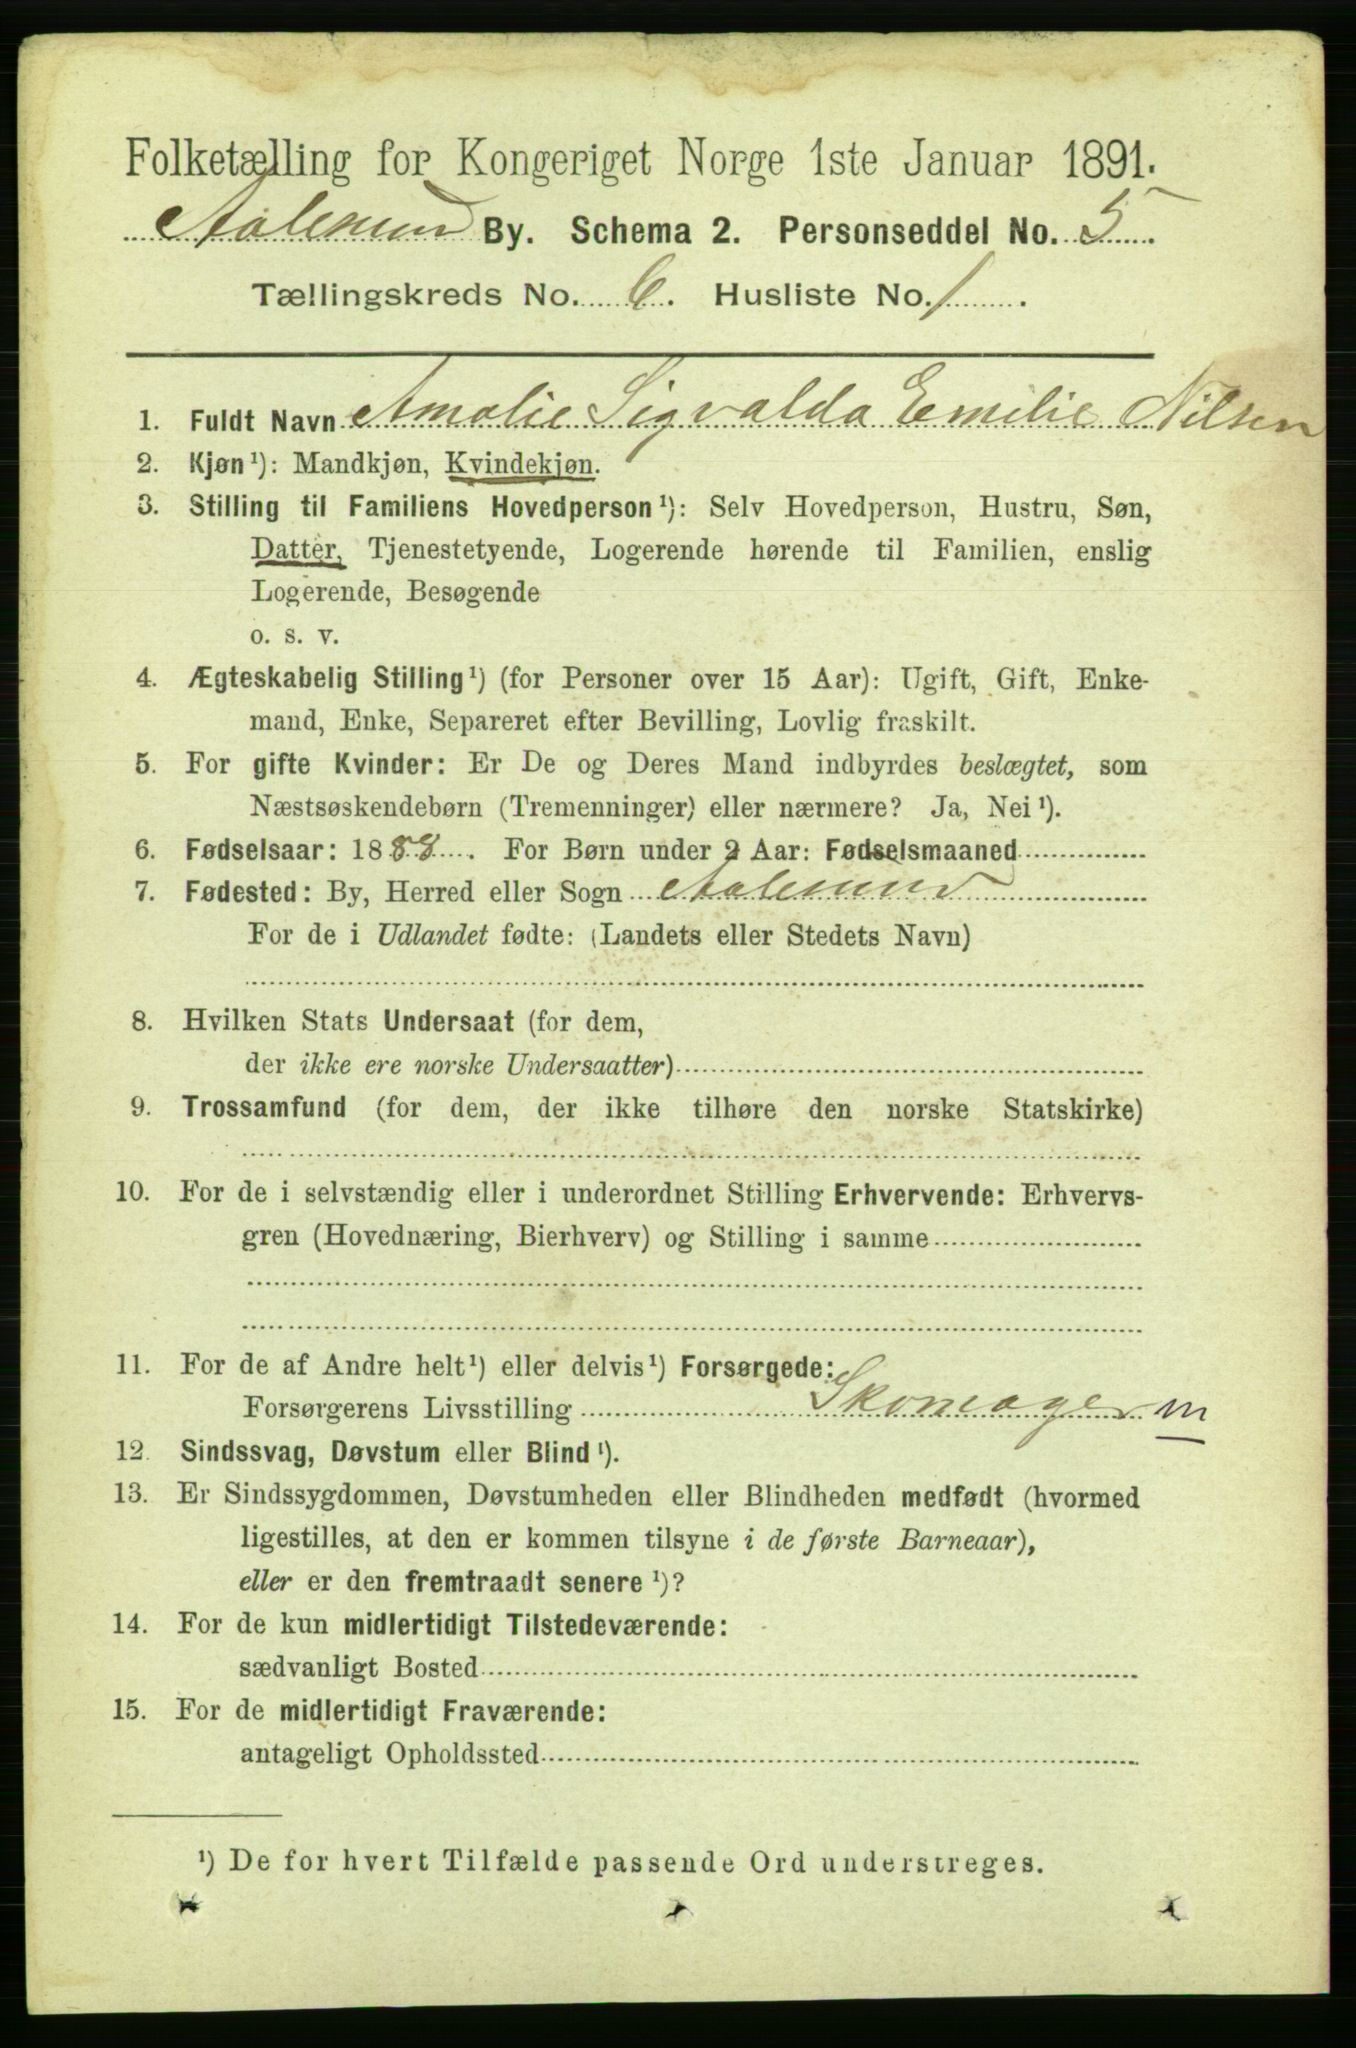 Folketælling for Kongeriget Norge 1ste Januar 1891.
Aalesund By. Schema 2. Personseddel No. 5.
Tællingskreds No. 6. Husliste No. 1.
1. Fuldt Navn Amalie Sigvalda Emilie Nilsen
2. Kjøn¹): Mandkjøn, Kvindekjøn.
3. Stilling til Familiens Hovedperson¹): Selv Hovedperson, Hustru, Søn,
Datter, Tjenestetyende, Logerende hørende til Familien, enslig
Logerende, Besøgende
o. s. v.
4. Ægteskabelig Stilling¹) (for Personer over 15 Aar): Ugift, Gift, Enke-
mand, Enke, Separeret efter Bevilling, Lovlig fraskilt.
5. For gifte Kvinder: Er De og Deres Mand indbyrdes beslægtet, som
Næstsøskendebørn (Tremenninger) eller nærmere? Ja, Nei¹).
6. Fødselsaar: 1888. For Børn under 2 Aar: Fødselsmaaned
7. Fødested: By, Herred eller Sogn Aalesund
For de i Udlandet fødte: (Landets eller Stedets Navn)
8. Hvilken Stats Undersaat (for dem,
der ikke ere norske Undersaatter)
9. Trossamfund (for dem, der ikke tilhøre den norske Statskirke)
10. For de i selvstændig eller i underordnet Stilling Erhvervende: Erhvervs-
gren (Hovednæring, Bierhverv) og Stilling i samme
11. For de af Andre helt¹) eller delvis¹) Forsørgede:
Forsørgerens Livsstilling Skomager m
12. Sindssvag, Døvstum eller Blind¹).
13. Er Sindssygdommen, Døvstumheden eller Blindheden medfødt (hvormed
ligestilles, at den er kommen tilsyne i de første Barneaar),
eller er den fremtraadt senere¹)?
14. For de kun midlertidigt Tilstedeværende:
sædvanligt Bosted
15. For de midlertidigt Fraværende:
antageligt Opholdssted
¹) De for hvert Tilfælde passende Ord understreges.